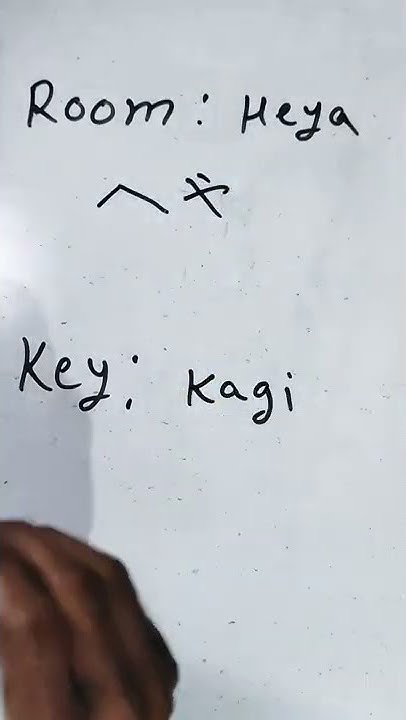 Room : Heya
へや
Key : Kagi